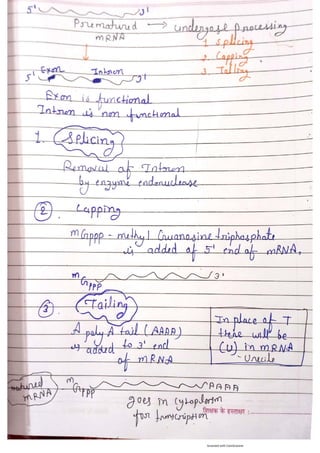 5' 3'
Prematured mRNA → undergose processing
1. Splicing
2. Capping
3. Tailing
5' Exon Intron 3'
Exon is functional
Intron is non functional
1. Splicing
Removal of Intron
by enzyme endonuclease
2. Capping
mGppp - methyl Guanosine triphosphate
is added of 5' end of mRNA.
mGppp 3'
3 Tailing
A poly A tail (AAAA)
is added to 3' end
of mRNA
In place of T
there will be
(U) in mRNA
- Uracile
matured mRNA mGppp AAAA
goes in cytoplasm
for transcription
शिक्षक के हस्ताक्षर :
Scanned with CamScanner